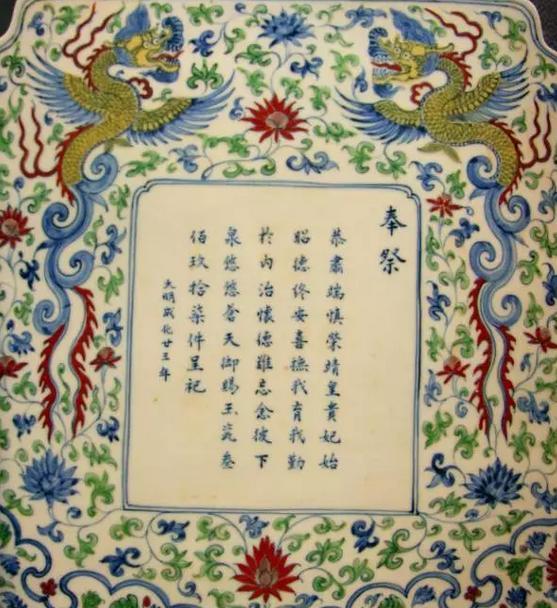 奉祭
恭肅端慎榮靖皇貴妃始
昭德終安喜撫我育我勤
於內治懷德難忘念彼下
泉悠悠蒼天御賜玉瓷叁
佰玖拾柒件呈祀
大明成化廿三年